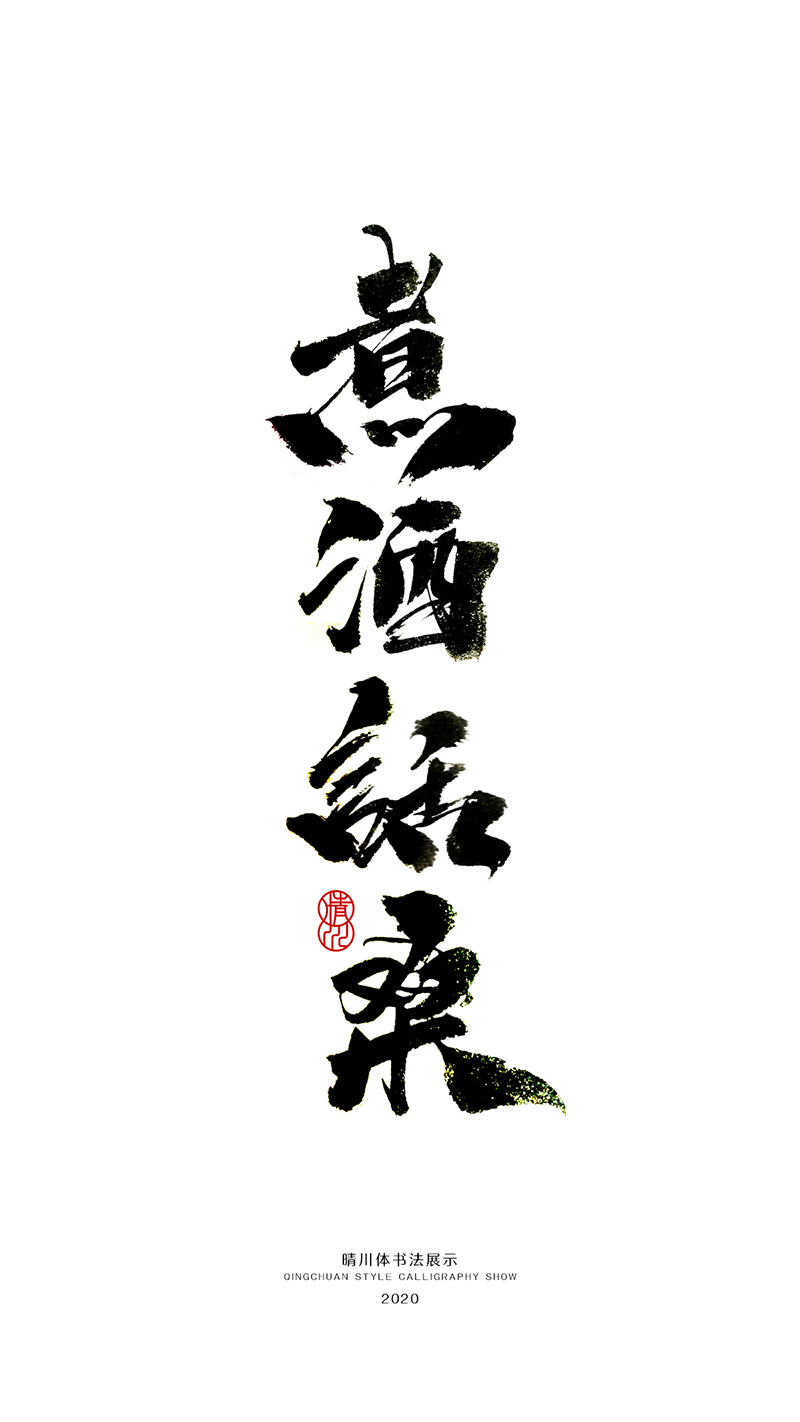 煮酒話桑
晴川
晴川体书法展示
QINGCHUAN STYLE CALLIGRAPHY SHOW
2020